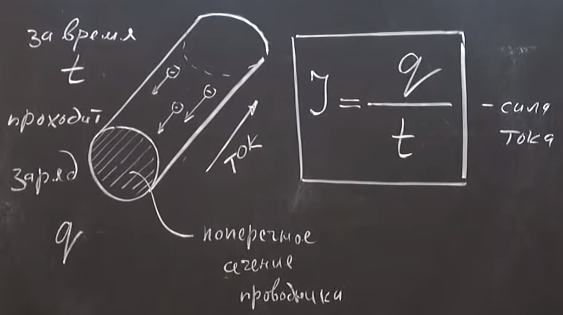 за время
t
проходит
заряд
q
ток
поперечное
сечение
проводника
J = q / t
- сила
тока